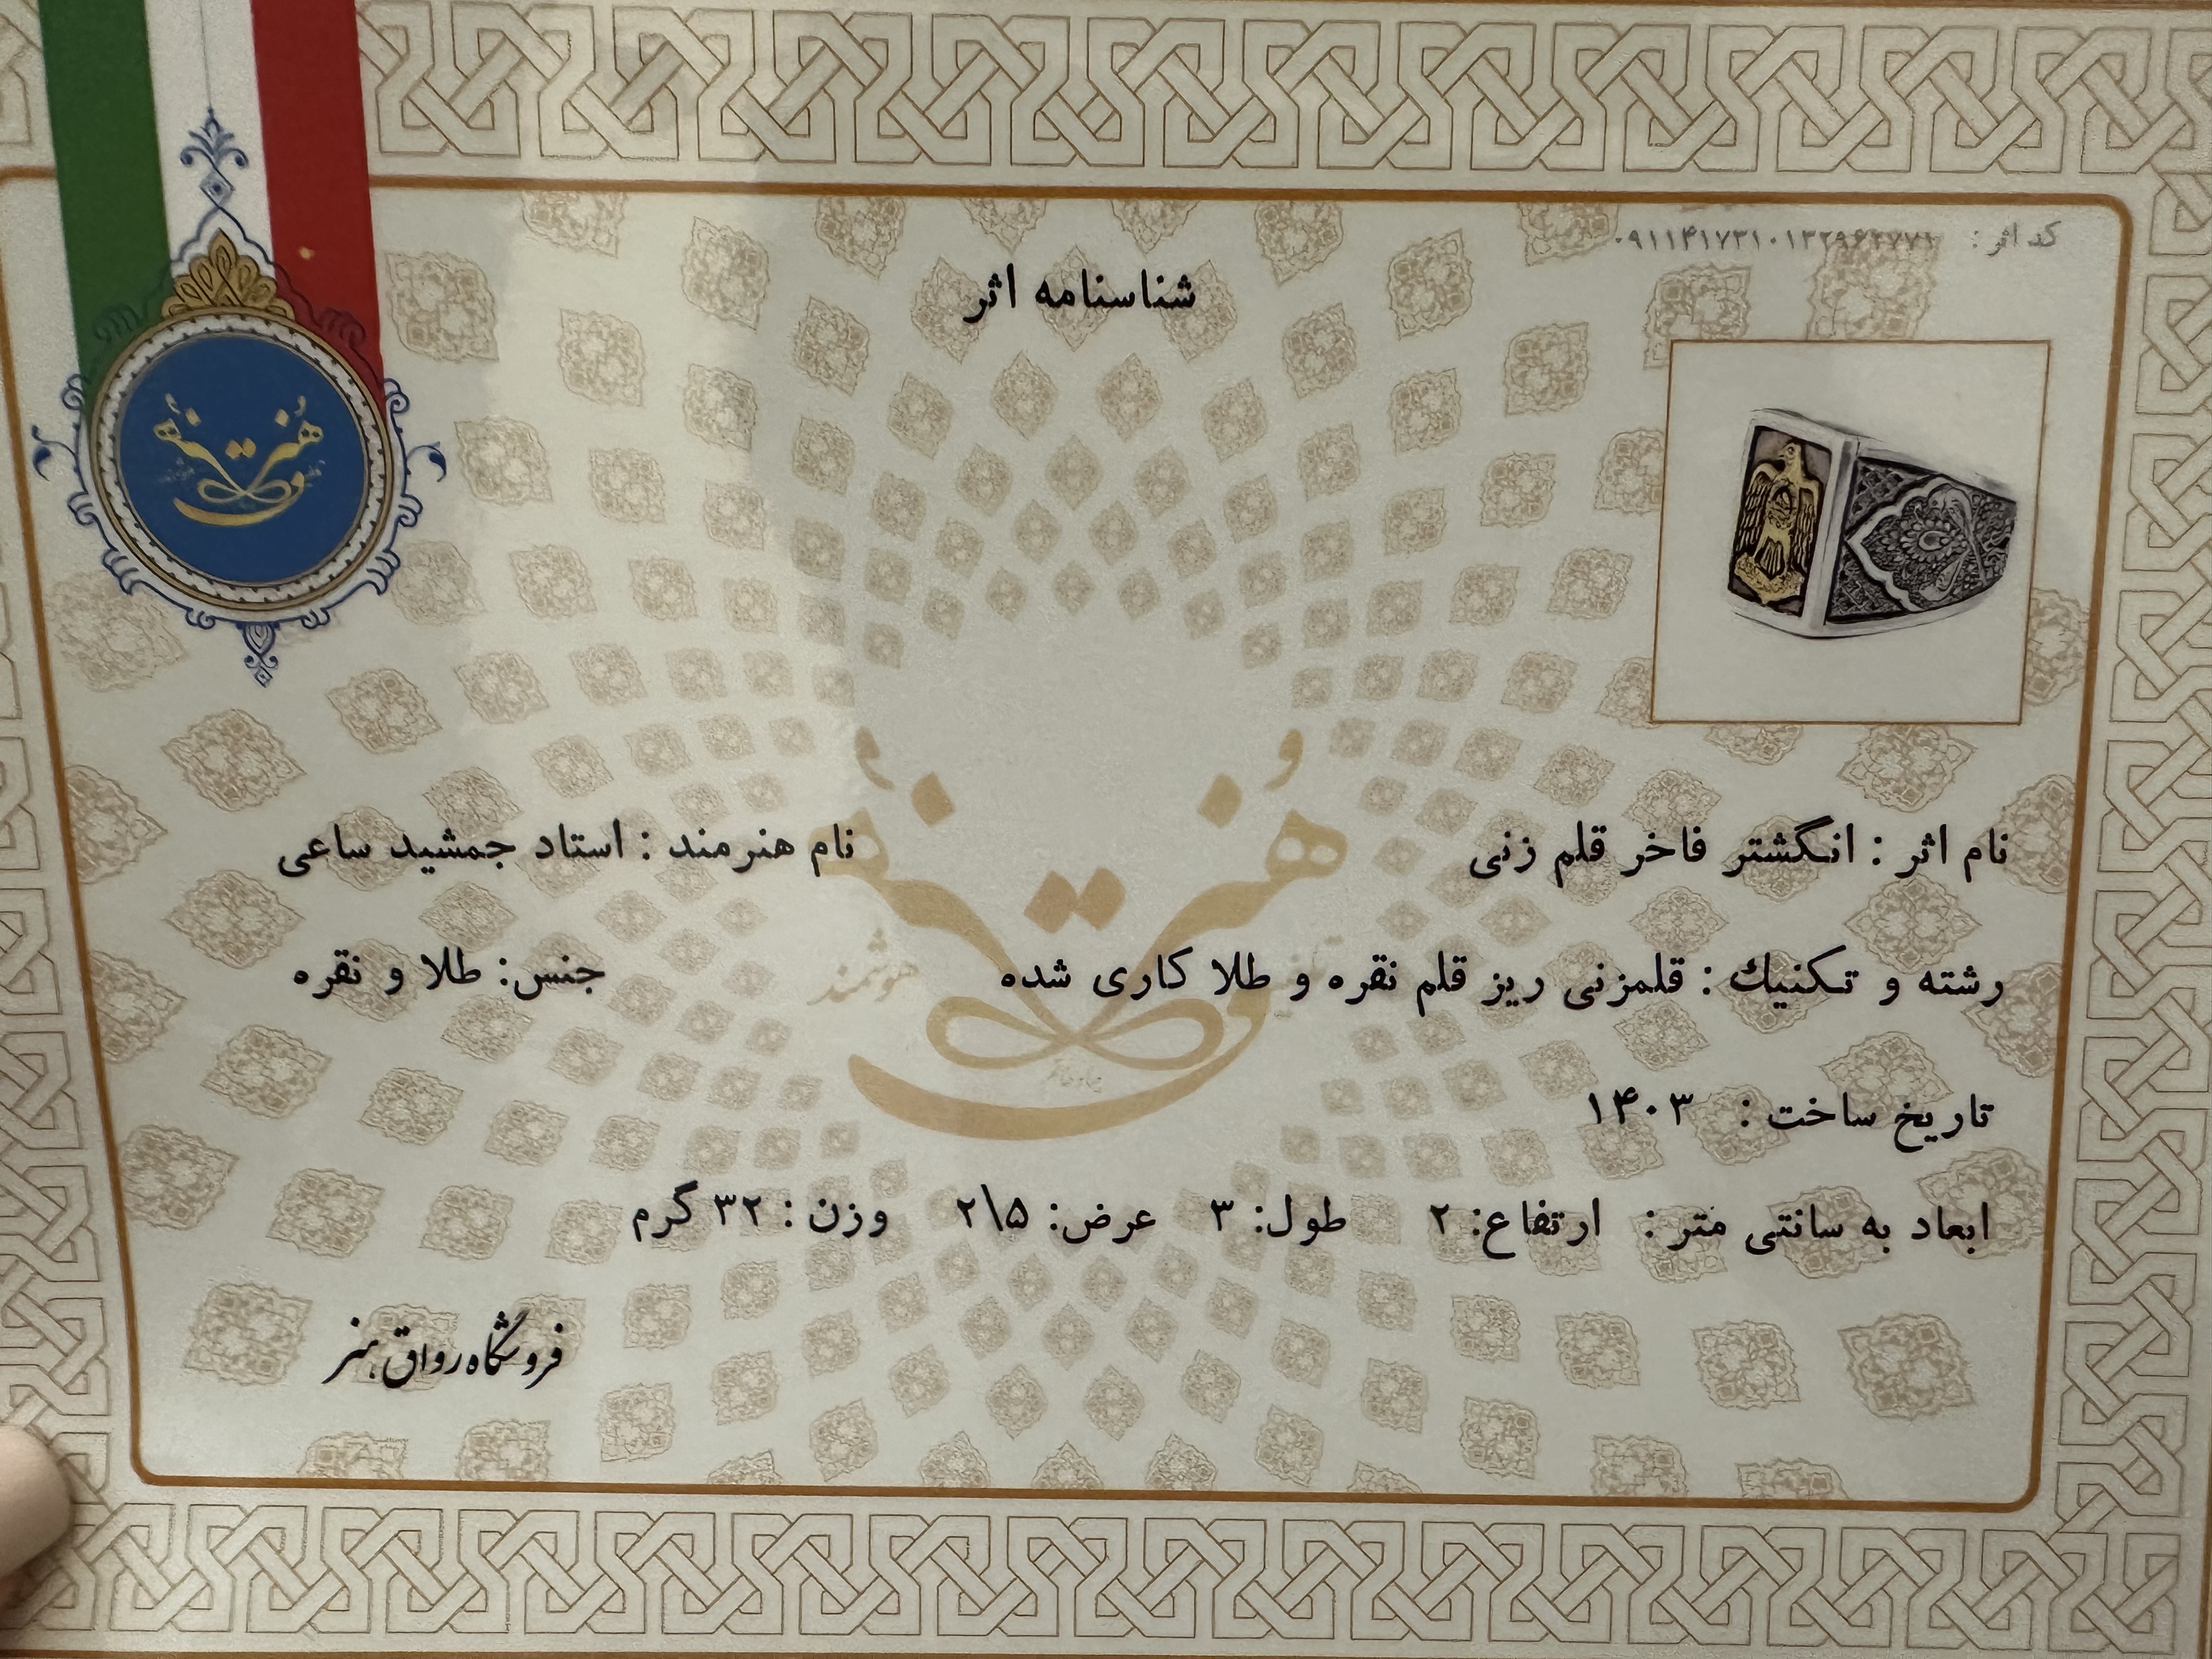 کد اثر : ۰۹۱۱۴۱۷۳۱۰۱۳۲۹۶۲۷۷۲
شناسنامه اثر
نام اثر : انگشتر فاخر قلم زنی
نام هنرمند : استاد جمشید ساعی
رشته و تکنیك : قلمزنی ریز قلم نقره و طلا کاری شده
جنس: طلا و نقره
هوشمند
تاریخ ساخت : ۱۴۰۳
ابعاد به سانتی متر : ارتفاع: ۲ طول: ۳ عرض: ۲\۵ وزن : ۳۲ گرم
فروشگاه رواق هنر